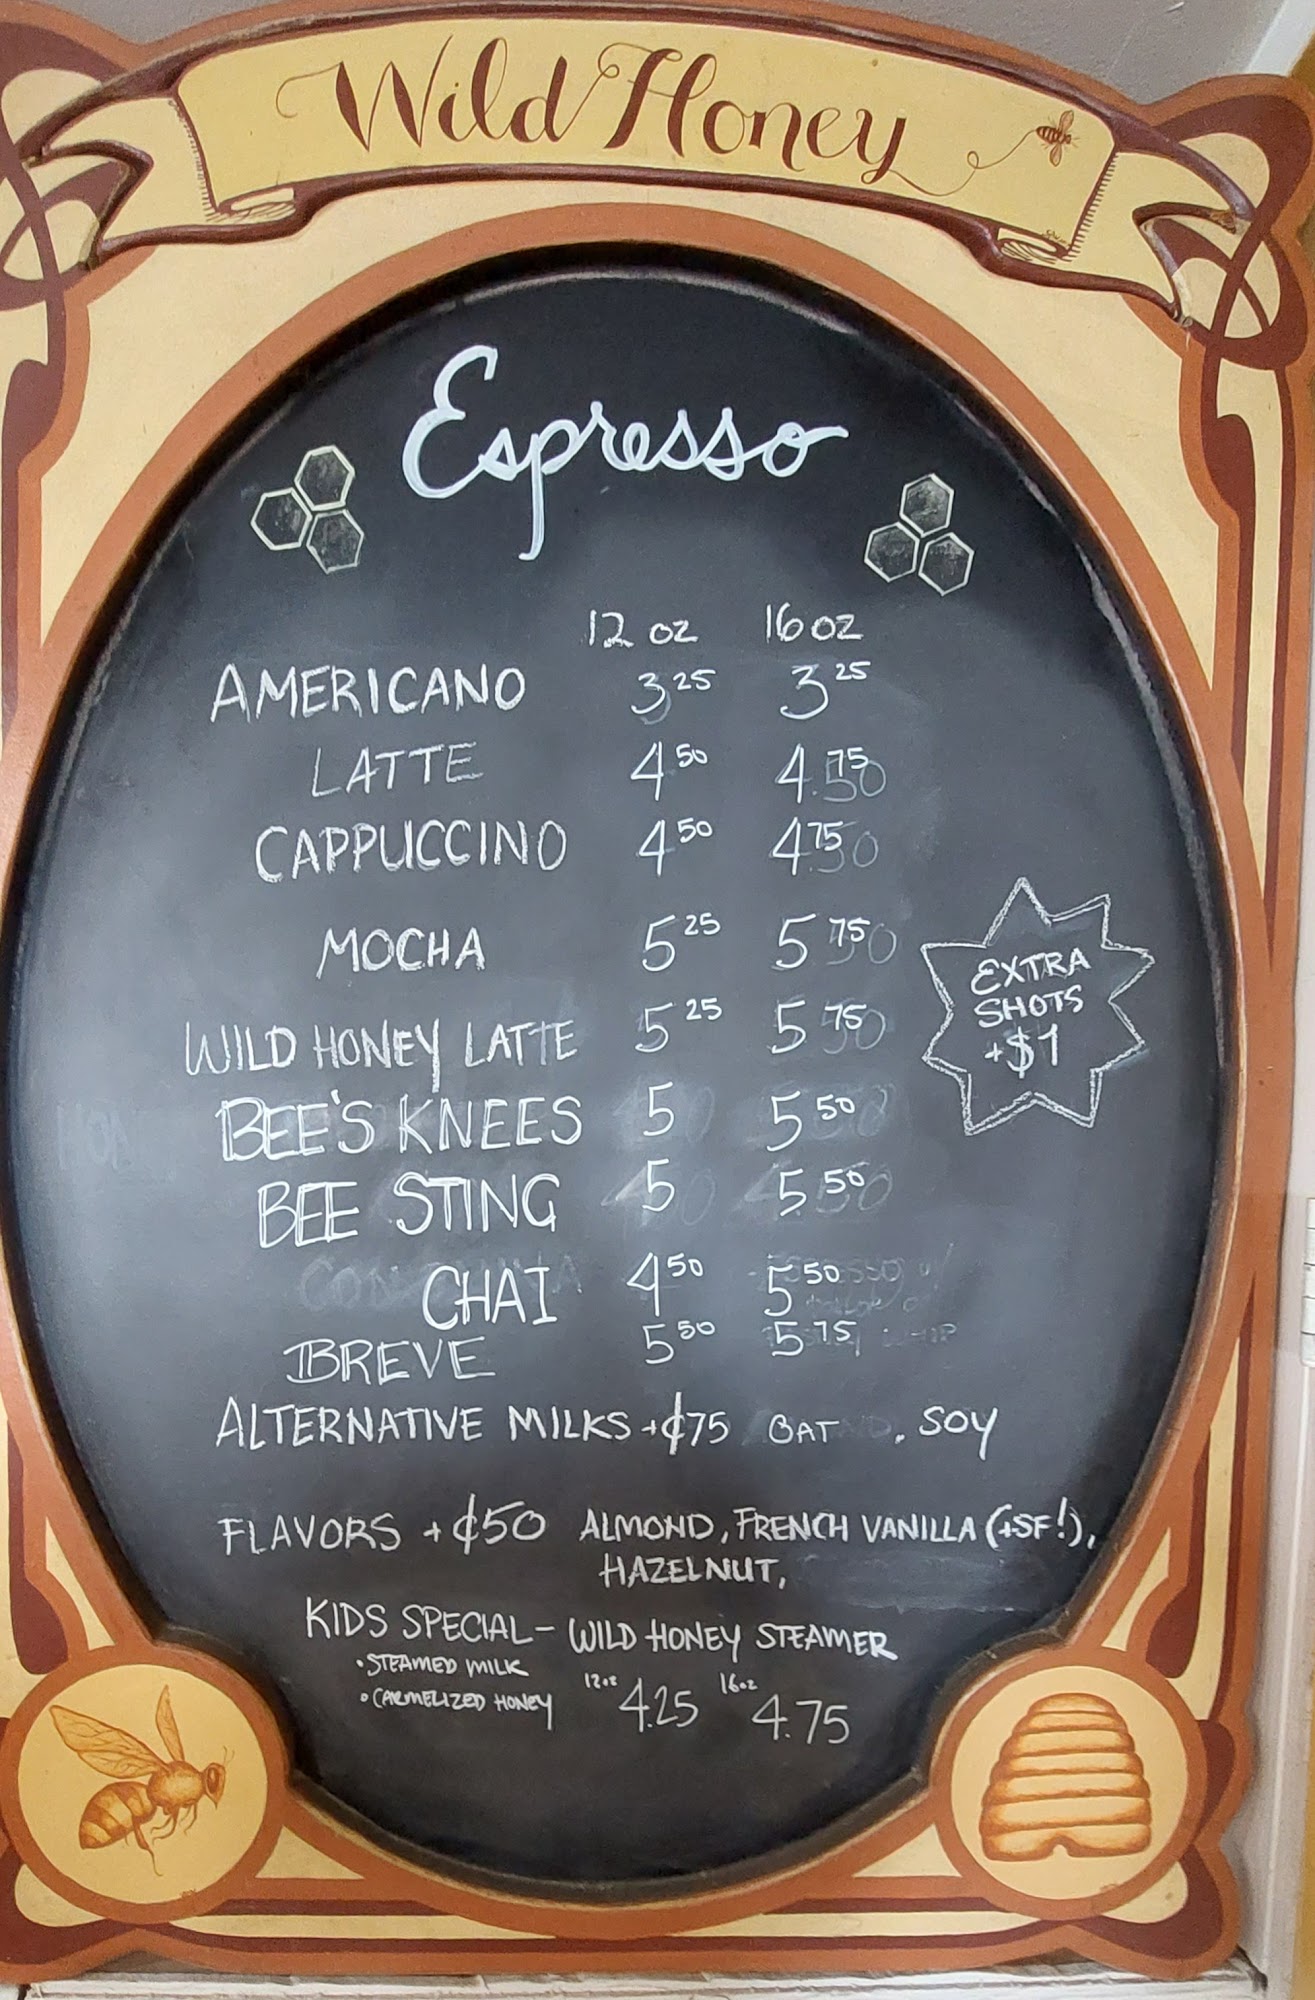 Wild Honey
Espresso
12 oz 16 oz
AMERICANO 3 25 3 25
LATTE 4 50 4 75
CAPPUCCINO 4 50 4 75
MOCHA 5 25 5 75
WILD HONEY LATTE 5 25 5 75
EXTRA
SHOTS
+$1
BEE'S KNEES 5 5 50
BEE STING 5 5 50
CHAI 4 50 5 50
BREVE 5 50 5 75
ALTERNATIVE MILKS +¢75 OAT . SOY
FLAVORS +¢50 ALMOND, FRENCH VANILLA (+SF!),
HAZELNUT,
KIDS SPECIAL - WILD HONEY STEAMER
• STEAMED MILK
• CARMELIZED HONEY 12oz 4.25 16oz 4.75